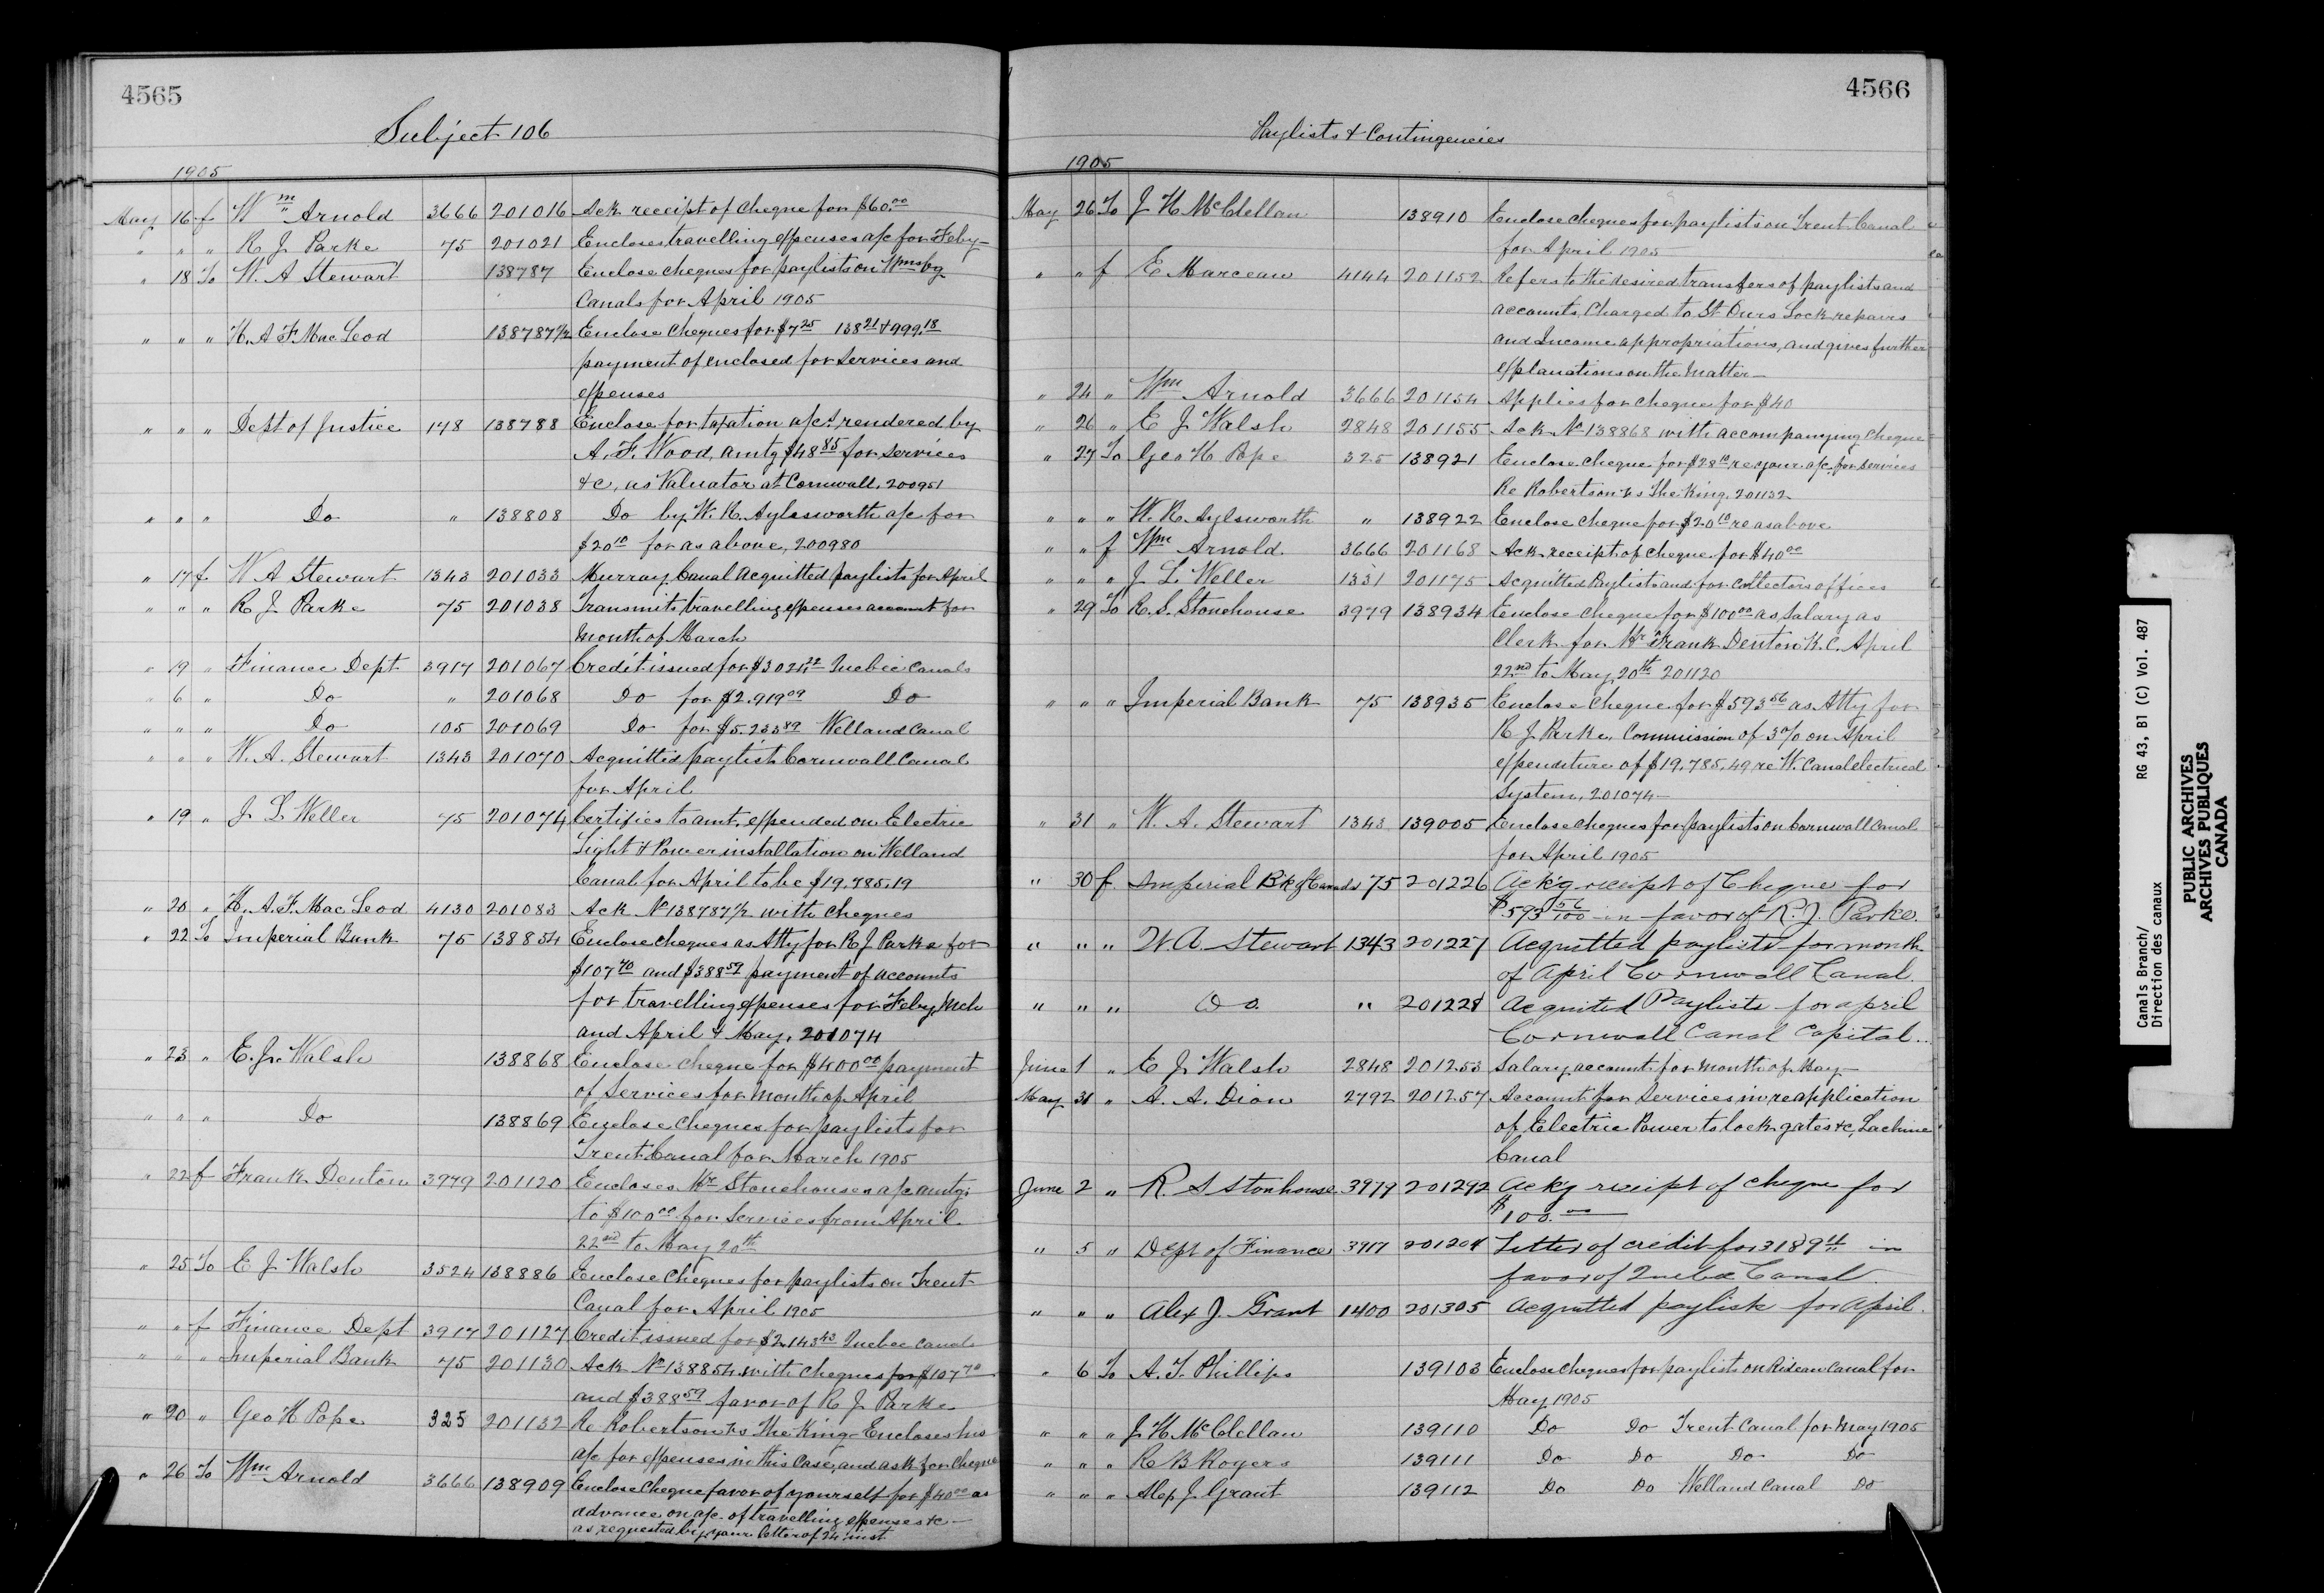 4565
Subject 106
1905
May 16 f Wm Arnold 3666 201016 Ack receipt of cheque for $60.00
" " " R J Parke 75 201021 Encloses travelling expenses a/c for Feby-
" 18 To W. A Stewart 138787 Enclose cheques for paylists on Wmsbg
Canals for April 1905
" " " H. A F. Mac Leod 138787 1/2 Enclose cheques for $7 25 138 21 & 999.18
payment of enclosed for services and
expenses
" " " Dept of Justice 148 138788 Enclose for taxation a/cs rendered by
A. F. Wood, amtg $48 85 for services
&c, as Valuator at Cornwall. 200951
" " " Do " 138808 Do by W. R. Aylesworth a/c for
$20 10 for as above, 200980
" 17 f. W A Stewart 1343 201033 Murray Canal Acquitted paylists for April
" " " R J Parke 75 201038 Transmits travelling expenses account for
month of March
" 19 " Finance Dept 3917 201067 Credit issued for $3024 22 Quebec Canals
" 6 " Do " 201068 Do for $2.919 09 Do
" " " Do 105 201069 Do for $5.233 89 Welland Canal
" " " W. A. Stewart 1343 201070 Acquitted paylist Cornwall Canal
for April
" 19 " J L Weller 75 201074 Certifies to amt. expended on Electric
Light & Power installation on Welland
Canal for April to be $19,785.19
" 20 " H. A. F. Mac Leod 4130 201083 Ack No 138787 1/2 with cheques
" 22 To Imperial Bank 75 138854 Enclose cheques as Atty for R J Parke for
$107 70 and $388 59 payment of accounts
for travelling expenses for Feby, Mch
and April & May, 201074
" 23 " E. J. Walsh 138868 Enclose cheque for $400 00 payment
of services for month of April
" " " Do 138869 Enclose cheques for paylists for
Trent Canal for March 1905
" 22 f Frank Denton 3979 201120 Encloses Mr Stonehouses a/c amtg
to $100 00 for services from April
22nd to May 20th
" 25 To E J Walsh 3524 138886 Enclose cheques for paylists on Trent
Canal for April 1905
" " f Finance Dept 3917 201127 Credit issued for $2,143 43 Quebec Canals
" " " Imperial Bank 75 201130 Ack No 138854 with cheques for $107 70
and $388 59 favor of R J Parke
" 20 " Geo H Pope 325 201132 Re Robertson vs The King - Encloses his
a/c for expenses in this case, and ask for cheque
" 26 To Wm Arnold 3666 138909 Enclose cheque favor of yourself for $40 00 as
advance on a/c. of travelling expenses &c-
as requested by your letter of 24 inst
4566
Paylists & Contingencies
1905
May 26 To J H McClellan 138910 Enclose cheques for paylists on Trent Canal
for April 1905
" " f E Marceau 4144 201152 Refers to the desired transfers of paylists and
accounts, charged to St Ours Lock repairs
and Income appropriations, and gives further
explanations on the matter-
" 24 " Wm Arnold 3666 201154 Applies for cheque for $40
" 26 " E J Walsh 2848 201155 Ack No 138868 with accompanying cheque
" 27 To Geo H Pope 325 138921 Enclose cheque for $28 10 re your a/c for services
Re Robertson vs The King. 201132
" " " W. R. Aylsworth " 138922 Enclose cheque for $20 10 re as above
" " f Wm Arnold. 3666 201168 Ack receipt of cheque for $40 00
" " " J L Weller 1331 201175 Acquitted Paylist and for collectors offices
" 29 To R. S. Stonehouse 3979 138934 Enclose cheque for $100 00 as salary as
Clerk for Mr Frank Denton K. C. April
22nd to May 20th 201120
" " " Imperial Bank 75 138935 Enclose cheque for $593 56 as Atty for
R J Parke, Commission of 3% on April
expenditure of $19,785.49 re W. Canal electrical
System, 201074-
" 31 " W. A. Stewart 1343 139005 Enclose cheques for paylists on Cornwall Canal
for April 1905
" 30 f. Imperial Bk of Canada 75 201226 Ack'g receipt of Cheque for
$593 56/100 in favor of R. J. Parke.
" " " W. A. Stewart 1343 201227 Acquitted paylists for month
of April Cornwall Canal.
" " " Do. " 201228 Acquited Paylists for april
Cornwall Canal Capital..
June 1 " E J Walsh 2848 201253 Salary account for month of May-
May 31 " A. A. Dion 2792 201257 Account for services in re application
of Electric Power to lock gates &c, Lachine
Canal
June 2 " R. S Stonhouse 3979 201292 Ackg receipt of cheque for
$100.00
" 5 " Dept of Finance 3917 Letter of credit for 3189 11 in
favor of Quebec Canal.
" " " Alex J. Grant 1400 201305 Acquitted paylists for April.
" 6 To A. T. Phillips 139103 Enclose cheques for paylists on Rideau Canal for
May 1905
" " " J H McClellan 139110 Do Do Trent Canal for May 1905
" " " R B Rogers 139111 Do Do Do Do
" " " Alex J. Grant 139112 Do Do Welland Canal Do
Canals Branch/
Direction des canaux
RG 43, B1 (C) Vol. 487
PUBLIC ARCHIVES
ARCHIVES PUBLIQUES
CANADA